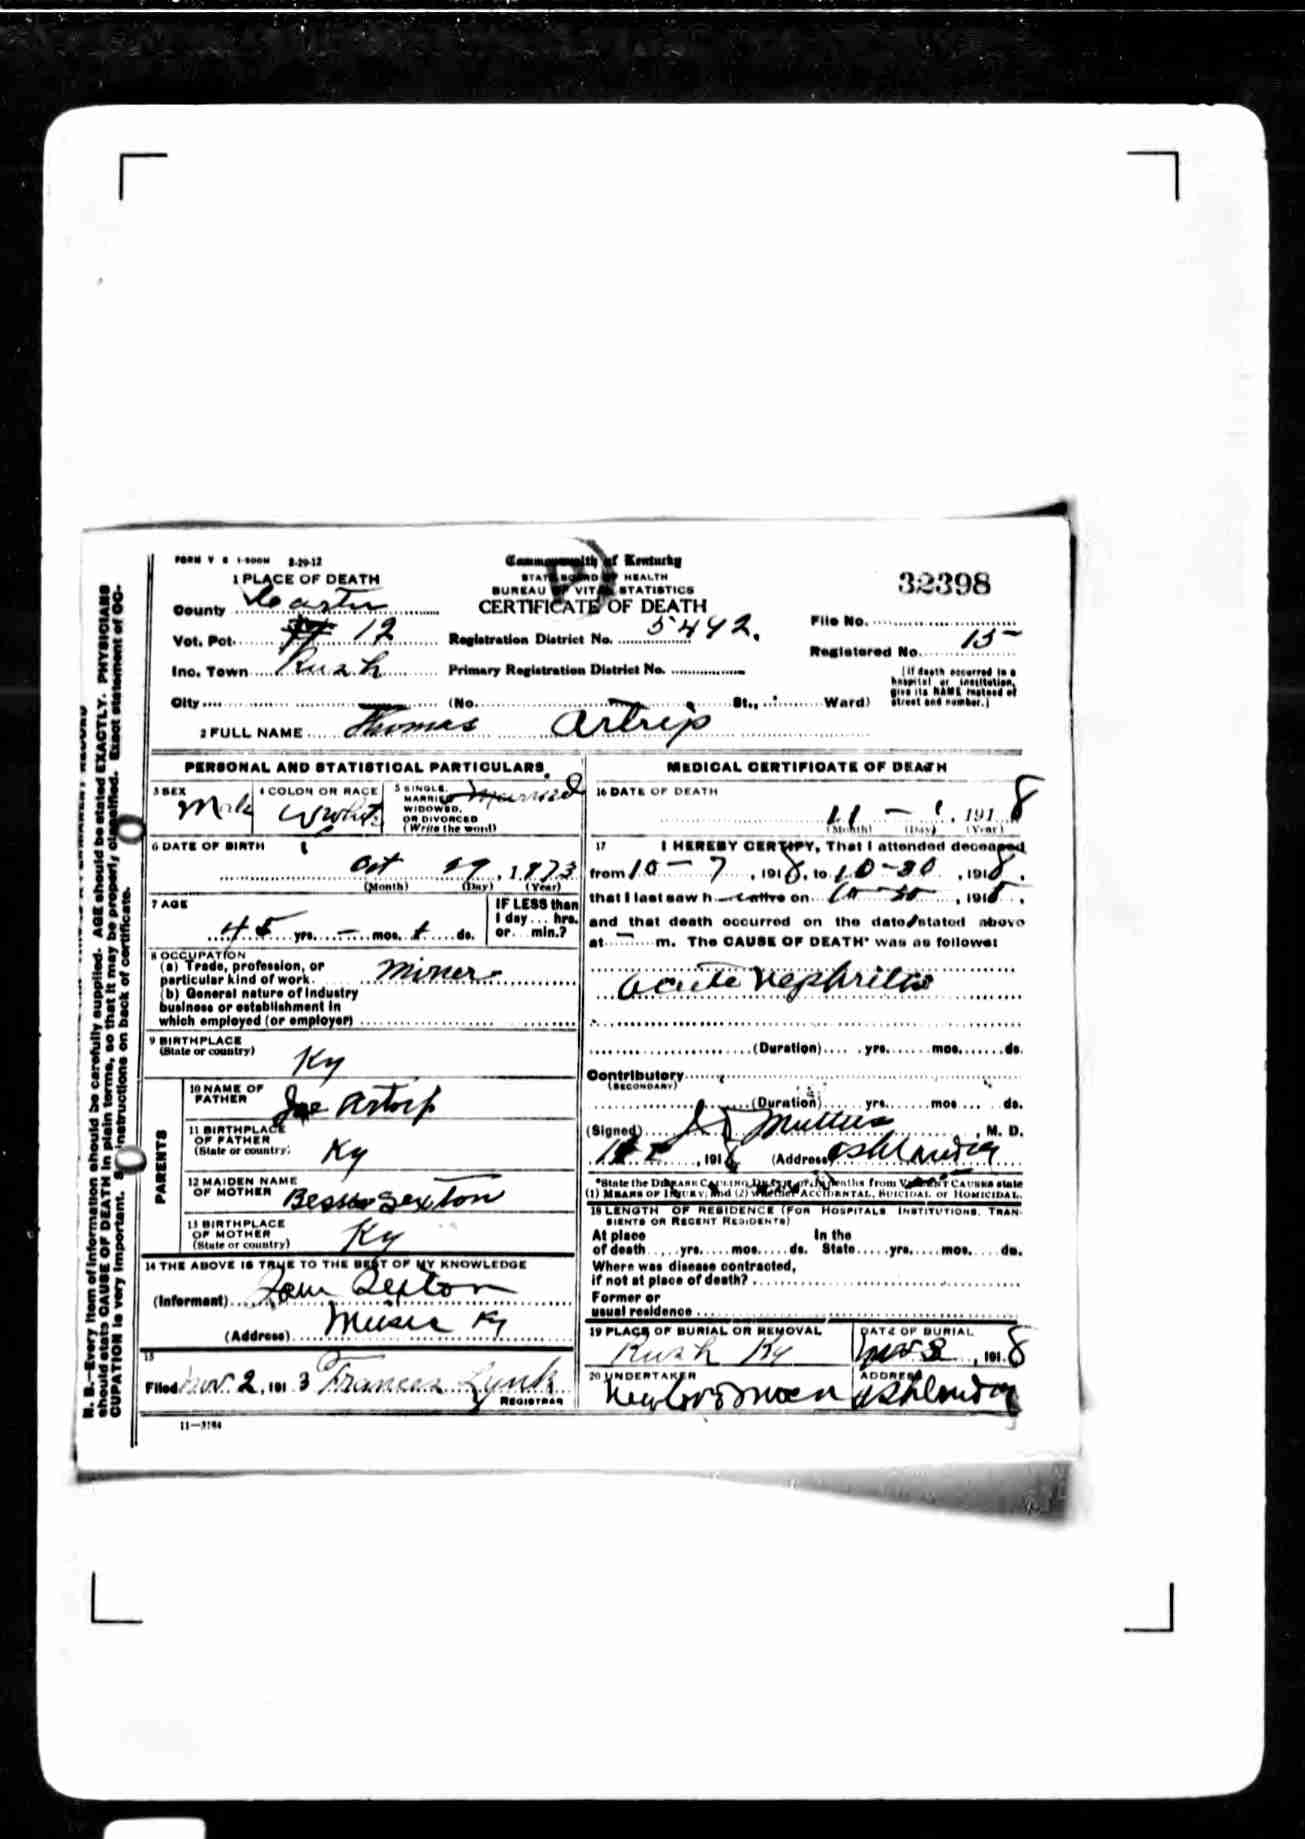 FORM V S 1-500M 2-20-12
Commonwealth of Kentucky
STATE BOARD OF HEALTH
BUREAU OF VITAL STATISTICS
CERTIFICATE OF DEATH
32398
1 PLACE OF DEATH
County Carter
Vot. Pct. 12
Registration District No. 5442.
File No.
Registered No. 15
Inc. Town Rush
Primary Registration District No.
(If death occurred in a hospital or institution, give its NAME instead of street and number.)
City (No. St., Ward)
2 FULL NAME Thomas Artrip
PERSONAL AND STATISTICAL PARTICULARS
3 SEX Male
4 COLOR OR RACE White
5 SINGLE, MARRIED WIDOWED, OR DIVORCED (Write the word) Married
6 DATE OF BIRTH
Oct 29, 1873
(Month) (Day) (Year)
7 AGE
45 yrs. — mos. ds.
IF LESS than 1 day... hrs. or... min.?
8 OCCUPATION
(a) Trade, profession, or particular kind of work. Miner
(b) General nature of Industry business or establishment in which employed (or employer)
9 BIRTHPLACE
(State or country) Ky
PARENTS
10 NAME OF FATHER Joe Artrip
11 BIRTHPLACE OF FATHER (State or country) Ky
12 MAIDEN NAME OF MOTHER Bessie Sexton
13 BIRTHPLACE OF MOTHER (State or country) Ky
14 THE ABOVE IS TRUE TO THE BEST OF MY KNOWLEDGE
(Informant) Sexton
(Address) Ky
15
Filed Nov. 2, 191 3 Frances Lynk
REGISTRAR
11—3184
MEDICAL CERTIFICATE OF DEATH
16 DATE OF DEATH
11 – 1, 1918
(Month) (Day) (Year)
17 I HEREBY CERTIFY, That I attended deceased
from 10 – 7, 1918, to 10–30, 1918,
that I last saw h alive on 10 – 30, 1918,
and that death occurred on the date stated above
at — m. The CAUSE OF DEATH* was as follows:
acute Nephritis
(Duration) yrs. mos. ds.
Contributory
(SECONDARY)
(Duration) yrs. mos. ds.
(Signed) M. D.
, 1918 (Address) Ashland Ky
*State the DISEASE CAUSING DEATH, or, in deaths from VIOLENT CAUSES state
(1) MEANS OF INJURY; and (2) whether ACCIDENTAL, SUICIDAL or HOMICIDAL.
18 LENGTH OF RESIDENCE (FOR HOSPITALS, INSTITUTIONS, TRANSIENTS OR RECENT RESIDENTS)
At place of death yrs. mos. ds. In the State yrs. mos. ds.
Where was disease contracted,
if not at place of death?
Former or
usual residence
19 PLACE OF BURIAL OR REMOVAL Rush Ky
DATE OF BURIAL Nov , 1918
20 UNDERTAKER
ADDRESS Ashland Ky
N. B.—Every item of information should be carefully supplied. AGE should be stated EXACTLY. PHYSICIANS
should state CAUSE OF DEATH in plain terms, so that it may be properly classified. Exact statement of OC-
CUPATION is very important. See instructions on back of certificate.